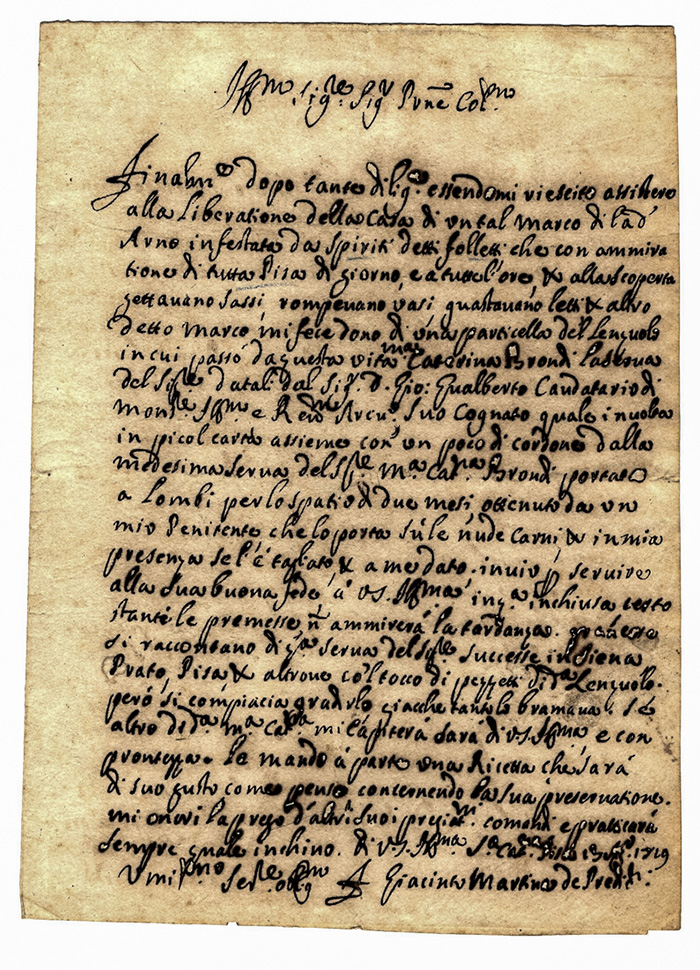 Ill.mo Sig.re Sig.r P.rone Col.mo
Finalm.e dopo tante dilig.e essendomi riescito assistere
alla Liberatione della Casa di un tal Marco di là d'
Arno infestata da spiriti detti folletti che con ammira
tione di tutta Pisa di giorno, e a tutte l'ore & alla scoperta
gettavano sassi rompevano vasi guastavano letti & altro
detto Marco mi fece dono di una particella del Lenzuolo
in cui passò da questa vita m.a Caterina Brondi la serva
del Sig.re datali dal Sig.r D. Gio: Gualberto Caudatario di
Mons.re Ill.mo e Rev.mo Arciv.o suo Cognato quale involta
in picol carta assieme con un poco di cordone dalla
medesima serva del Sig.re M.a Cat.na Brondi portato
a Lombi per lo spatio di due mesi ottenuto da un
mio Penitente che lo porta sù le nude carni & in mia
presenza se l'è tagliato & a me dato. invio p servire
alla sua buona fede à V.S. Ill.ma inchiusa certo
stante le premesse ñ ammirerà la tardanza.
si raccontano di q.a serva del Sig.re successe in Siena
Prato, Pisa & altrove col tocco di pezzetti di d.o Lenzuolo.
però si compiacia gradirlo giacche tanto lo bramava. Se
altro di d.a m.a Cat.na mi capiterà sarà di V.S. Ill.ma e con
prontezza. Le mando à parte una Ricetta che sarà
di suo gusto come penso concernendo la sua preservatione.
mi onori la prego d'altri suoi pregiat.mi comandi e pratticarà
sempre quale inchino. di V.S. Ill.ma S.a Cat.na Pisa 1719
Umi.mo Ser.re oblig F. Giacinto Martino de